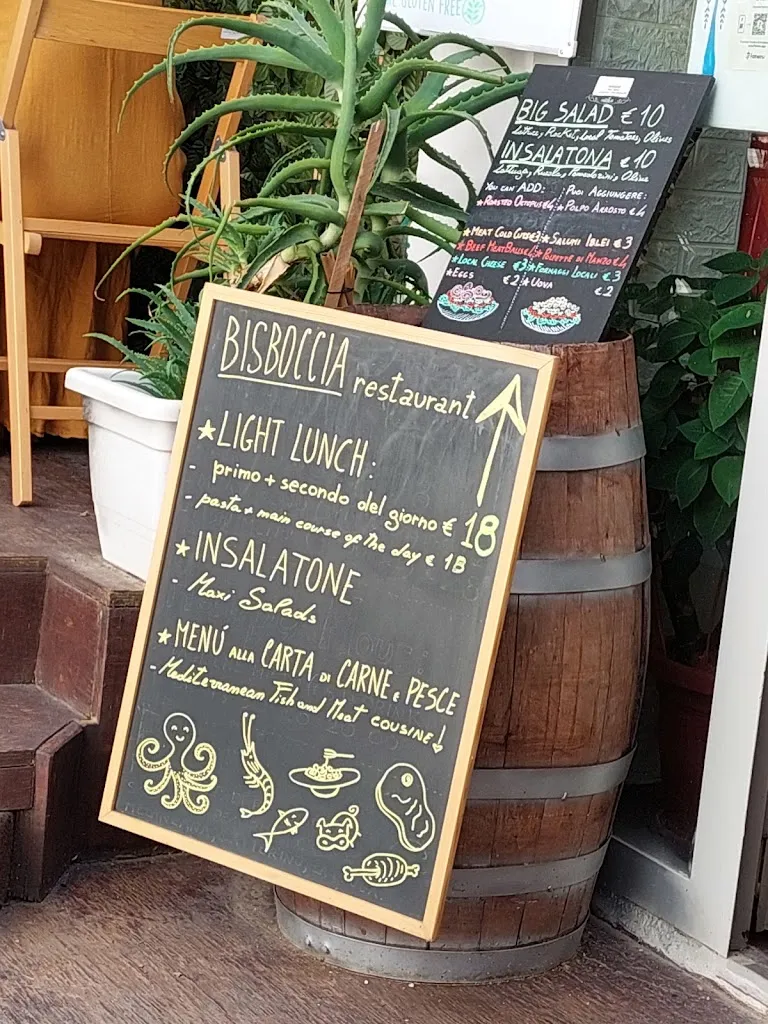 GLUTEN FREE
BIG SALAD € 10
Lettuce, Rocket, Local Tomatoes, Olives
INSALATONA € 10
Lattuga, Rucola, Pomodorini, Olive
YOU CAN ADD: PUOI AGGIUNGERE:
★ ROASTED OCTOPUS €4 ★ POLPO ARROSTO € 4
★ MEAT COLD CUTS €3 ★ SALUMI IBLEI € 3
★ BEEF MEATBALLS €4 ★ POLPETTE DI MANZO € 4
★ LOCAL CHEESE €3 ★ FORMAGGI LOCALI € 3
★ EGGS €2 ★ UOVA € 2
BISBOCCIA restaurant
★ LIGHT LUNCH:
- primo + secondo del giorno € 18
- pasta + main course of the day € 18
★ INSALATONE
- Maxi Salads
★ MENÚ ALLA CARTA DI CARNE E PESCE
- Mediterranean Fish and Meat COUSINE!